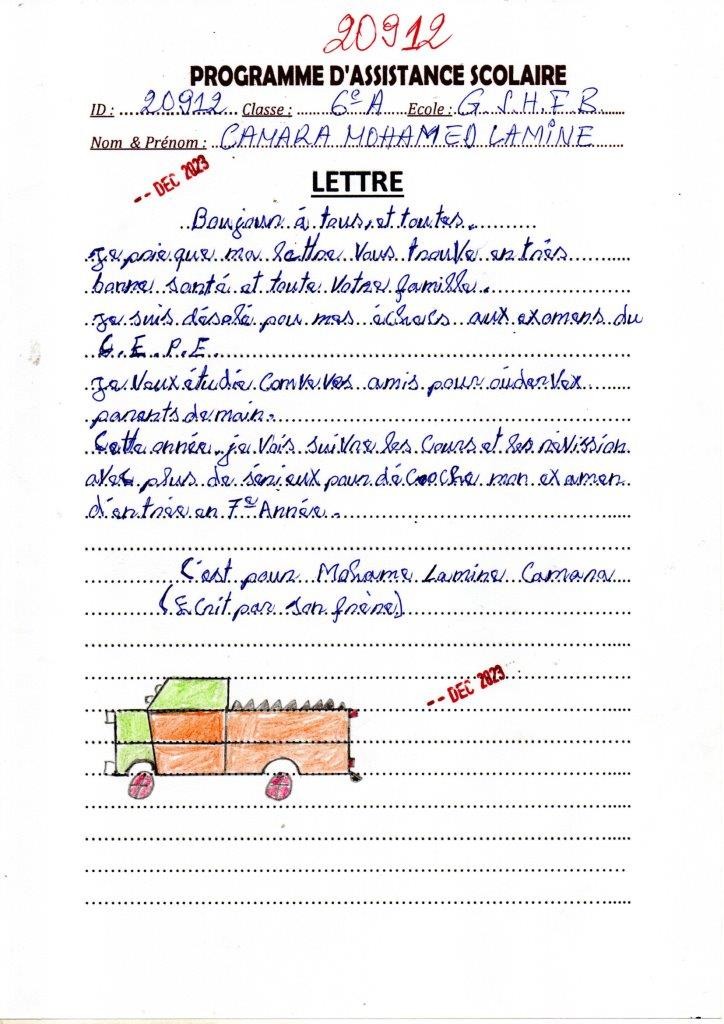 20912
PROGRAMME D'ASSISTANCE SCOLAIRE
ID : 20912 Classe : 6e A Ecole : G.S.H.F.B.
Nom & Prénom : CAMARA MOHAMED LAMINE
-- DEC 2023
LETTRE
Bonjour à tous, et toutes.
Je prie que ma lettre vous trouve en très
bonne santé et toute votre famille.
Je suis désolé pour mes échecs aux examens du
C.E.P.E.
Je veux étudié comve ves amis pour aider vex
parents demain.
Cette année je vais suivre les cours et les révission
avec plus de sérieux pour décroche mon examen
d'entrée en 7e Année.
C'est pour Mohame Lamine Camara
(Ecrit par son frère)
-- DEC 2023